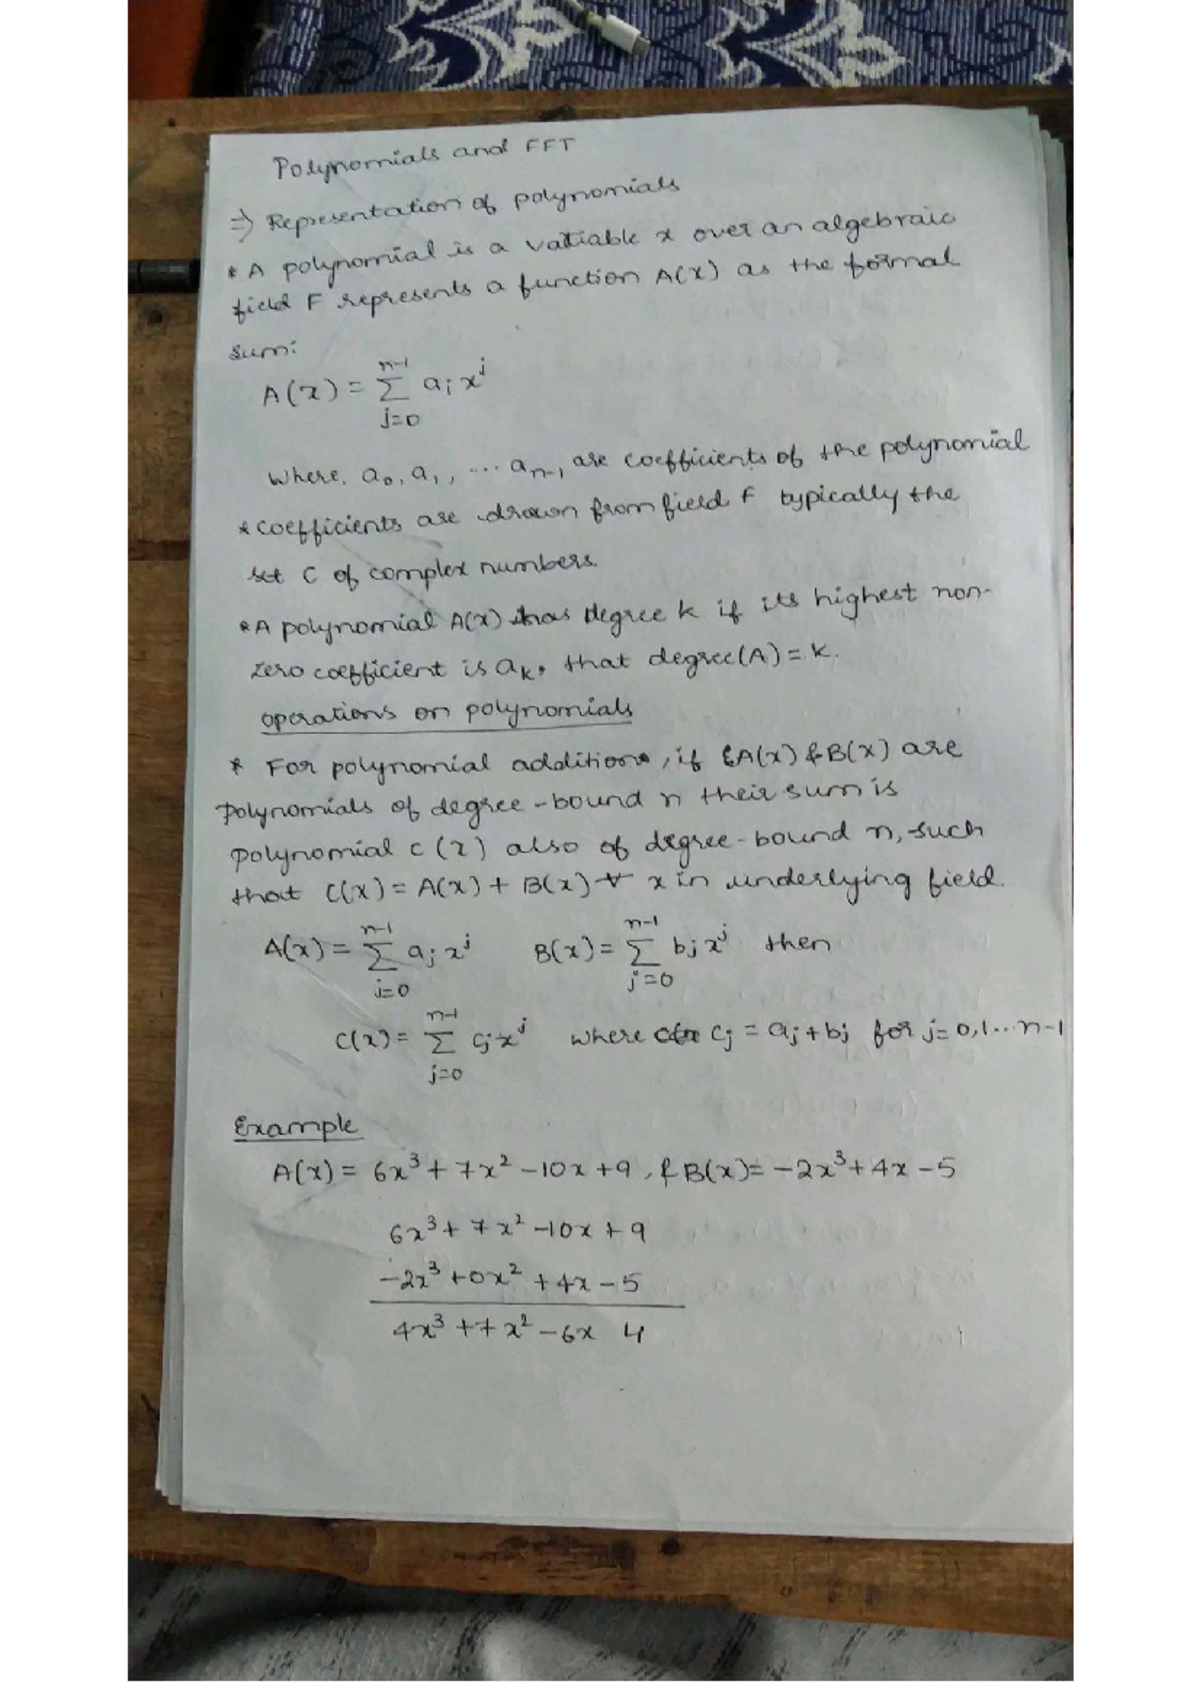 Polynomials and FFT
⇒ Representation of polynomials
* A polynomial is a variable x over an algebraic
field F represents a function A(x) as the formal
sum:
A(x) = Σ_{j=0}^{n-1} a_j x^j
where, a₀, a₁, ... a_{n-1} are coefficients of the polynomial
* coefficients are drawn from field F typically the
set C of complex numbers.
* A polynomial A(x) has degree k if its highest non-
zero coefficient is a_k, that degree(A) = k.
operations on polynomials
* For polynomial addition, if A(x) & B(x) are
polynomials of degree-bound n their sum is
polynomial c(x) also of degree-bound n, such
that C(x) = A(x) + B(x) ∀ x in underlying field.
A(x) = Σ_{j=0}^{n-1} a_j x^j B(x) = Σ_{j=0}^{n-1} b_j x^j then
C(x) = Σ_{j=0}^{n-1} c_j x^j where c_j = a_j + b_j for j = 0, 1 ... n-1
Example
A(x) = 6x³ + 7x² - 10x + 9, & B(x) = -2x³ + 4x - 5
6x³ + 7x² - 10x + 9
-2x³ + 0x² + 4x - 5
4x³ + 7x² - 6x 4